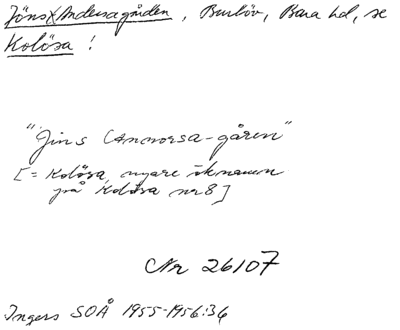 Jöns Andersagården, Burlöv, Bara hd, se
Kolösa!
"Jins Annorsa-gåren"
[= Kolösa, nyare öknamn
på Kolösa nr 8]
Nr 26107
Ingers SOÅ 1955-1956:36